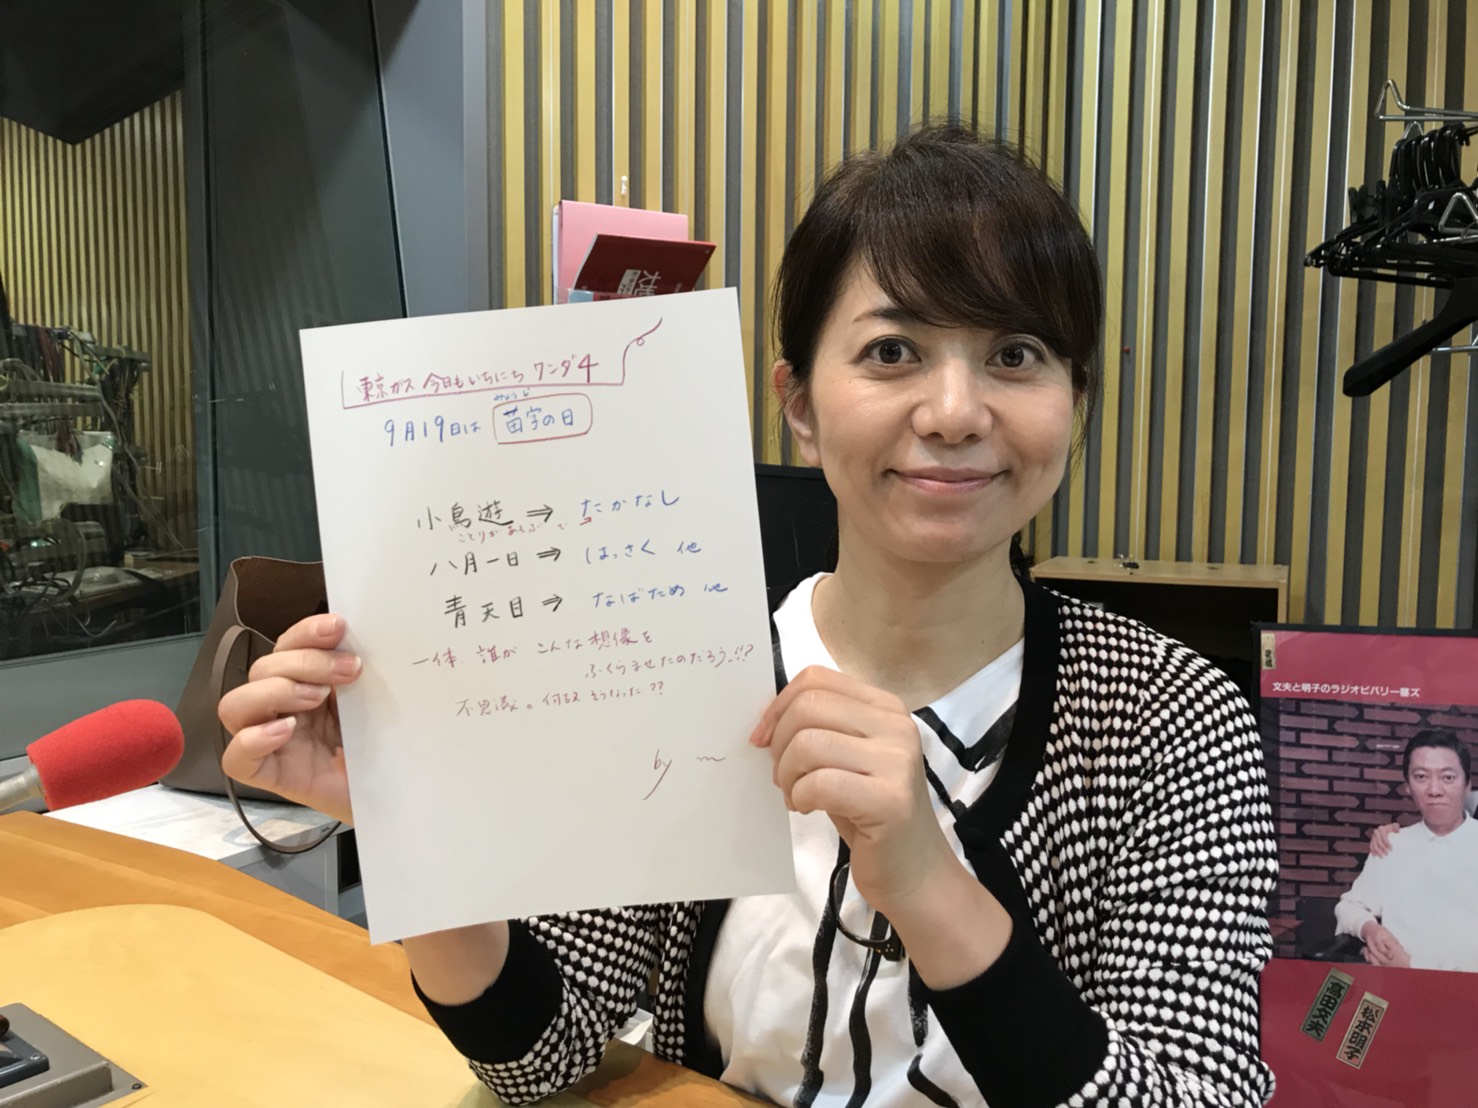 東京ガス 今日もいちにち ワンダ4
みょうじ
9月19日は 苗字の日
小鳥遊 ⇒ たかなし
ことりがあそぶで
八月一日 ⇒ はっさく 他
青天目 ⇒ なばため 他
一体、誰が こんな想像を
ふくらませたのだろう…!!?
不思議。何故 そうなった??
by
文夫と明子のラジオビバリー昼ズ
高田文夫
松本明子